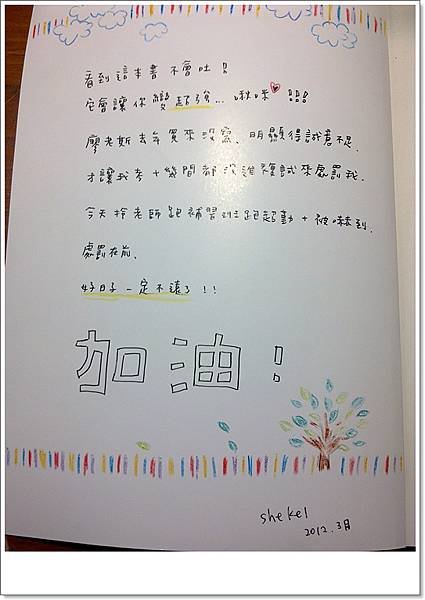 看到這本書不會吐!!
它會讓你變超強... 啾咪 !!!
廖老斯去年買來沒寫、明顯得誠意不足.
才讓我考十幾間都沒進複試來處罰我.
今天拎老師跑補習班跑起動+被嚇到.
處罰在前、
好日子一定不遠了!!
加油!
shekel
2012.3月